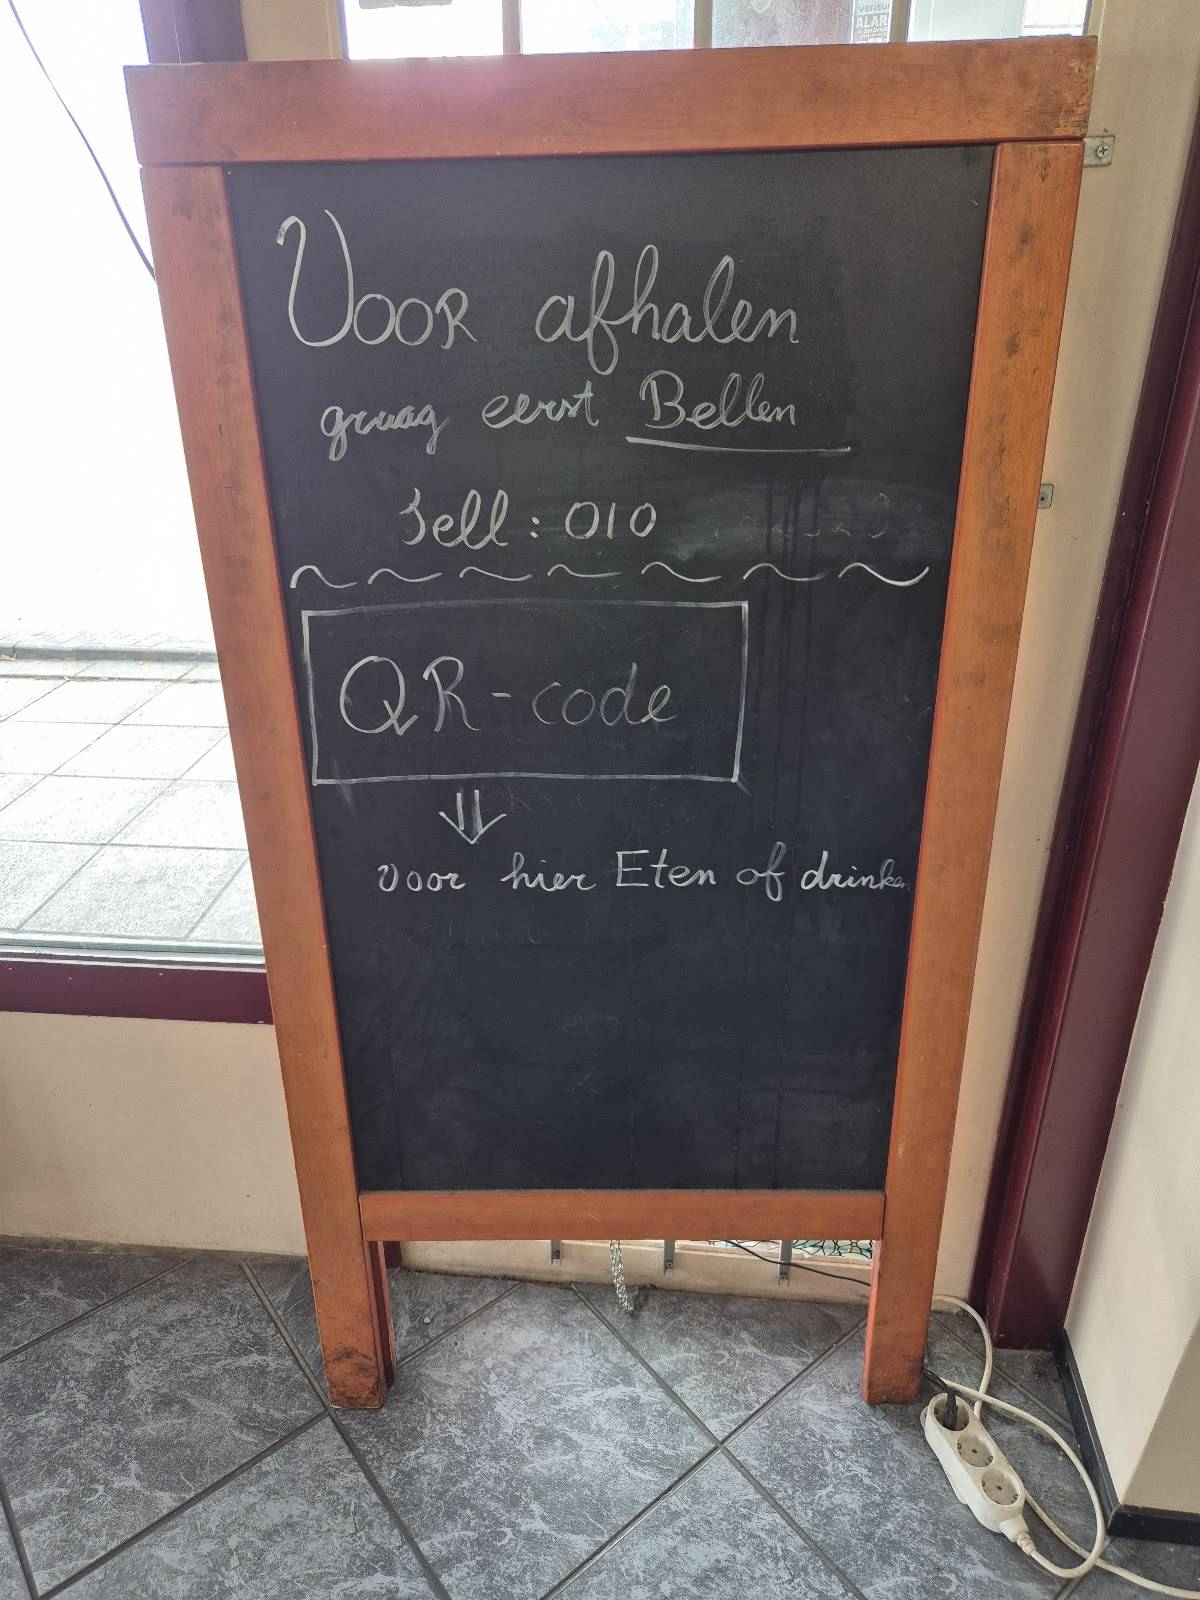 VERISU
ALAR
VOOR afhalen
graag eerst Bellen
Tell : 010
QR-code
voor hier Eten of drinken